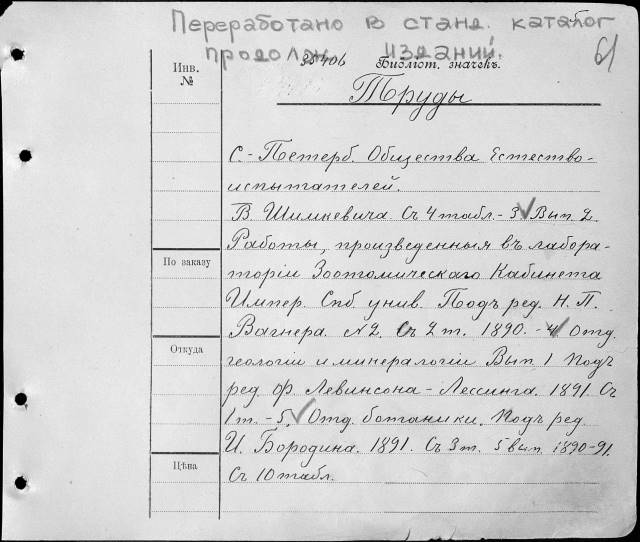 Переработано в станд. каталог
продолж. изданий.
61
38406
Инв.
№
Библіот. значекъ.
Труды
С.-Петерб. Общества Естество-
испытателей.
В. Шимкевича. Съ 4 табл. - 3 Вып. 2.
Работы, произведенныя въ лабора-
По заказу
торіи Зоотомическаго Кабинета
Импер. Спб. унив. Подъ ред. Н. П.
Вагнера. №2. Съ 2 т. 1890. - 4 Отд.
Откуда
геологіи и минералогіи Вып. 1 Подъ
ред. Ф. Левинсона-Лессинга. 1891. Съ
1 т. - 5. Отд. ботаники. Подъ ред
И. Бородина. 1891. Съ 3 т. 5 вып. 1890-91.
Цѣна
Съ 10 табл.